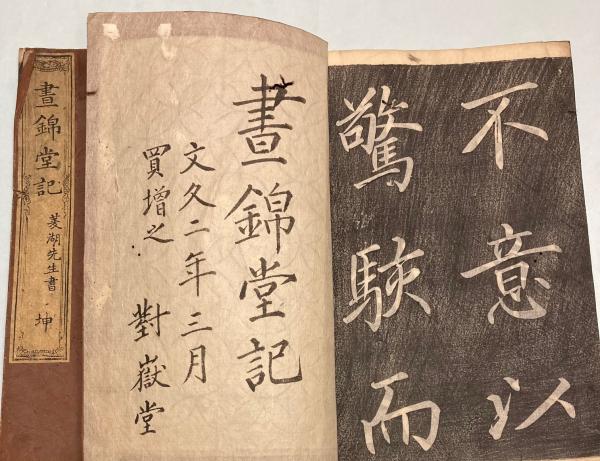 晝錦堂記
菱湖先生書
坤
晝錦堂記
文久二年三月
買増之
對嶽堂
不意以
驚駭而